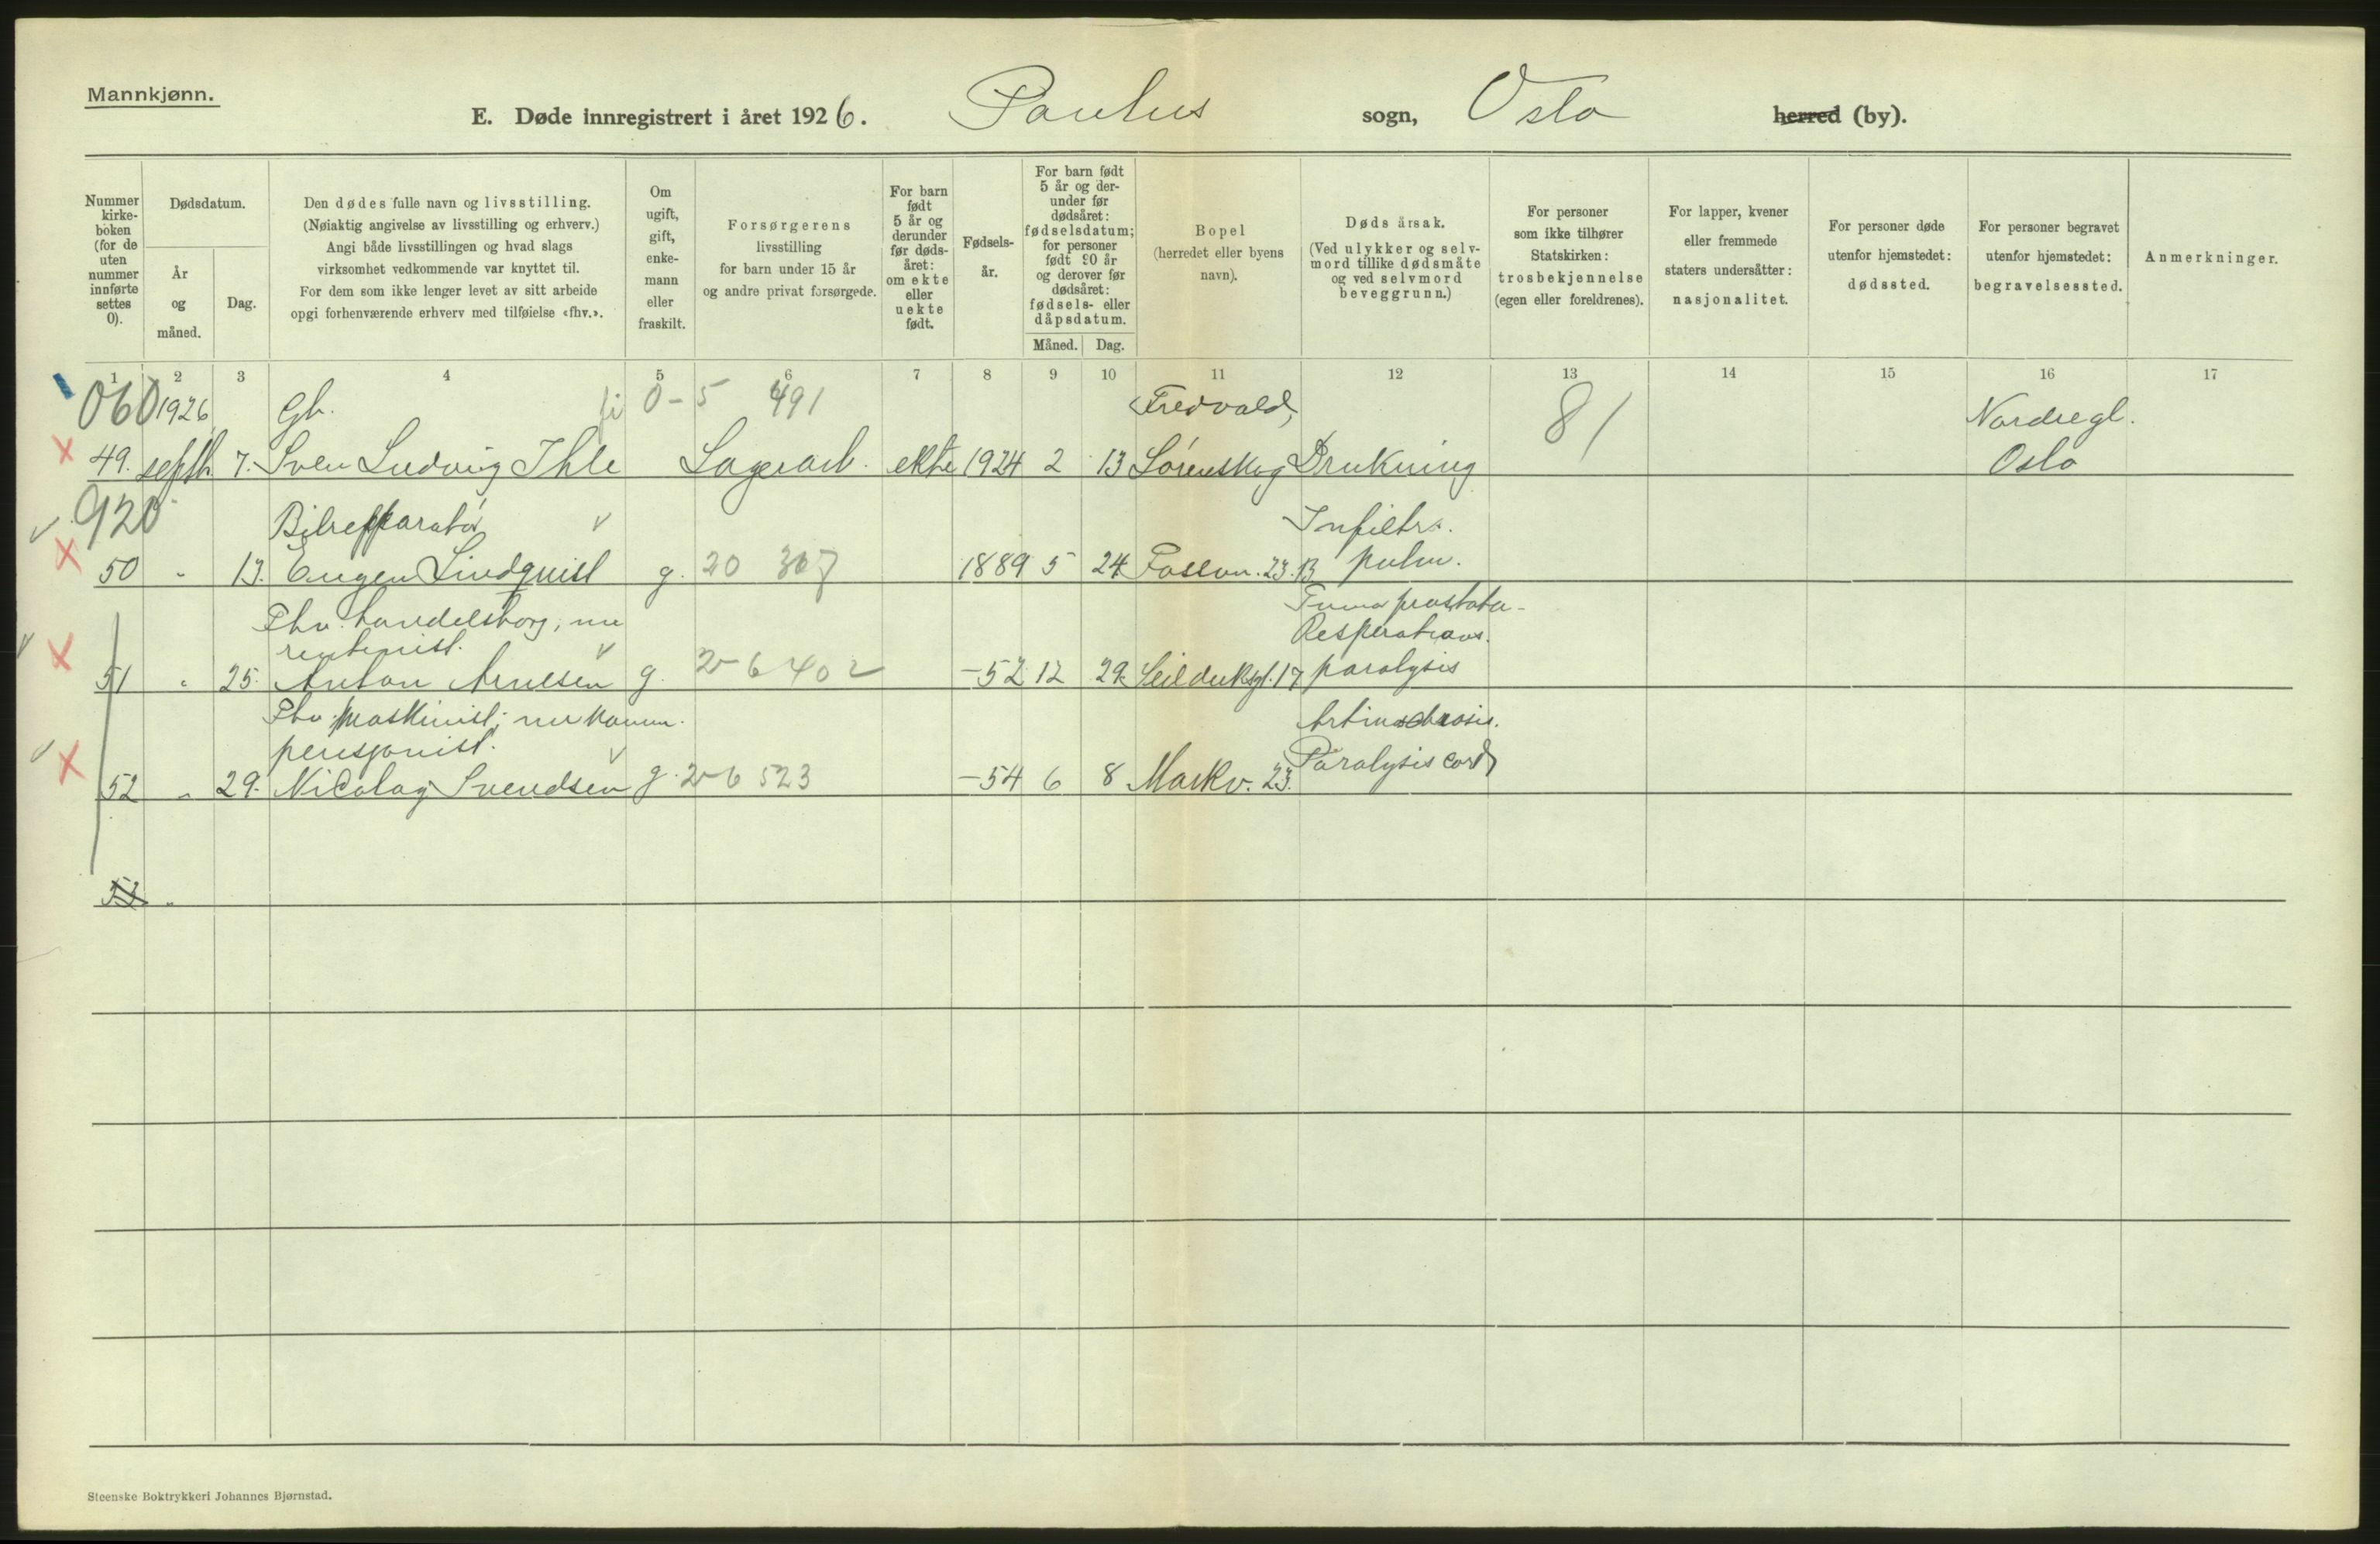 Mannkjønn.
E. Døde innregistrert i året 1926. Paulus sogn, Oslo herred (by).
Nummer kirke- boken (for de uten nummer innførte settes 0).
Dødsdatum.
År og måned.
Dag.
Den dødes fulle navn og livsstilling.
(Nøiaktig angivelse av livsstilling og erhverv.)
Angi både livsstillingen og hvad slags
virksomhet vedkommende var knyttet til.
For dem som ikke lenger levet av sitt arbeide
opgi forhenværende erhverv med tilføielse «fhv.».
Om ugift, gift, enke- mann eller fraskilt.
Forsørgerens
livsstilling
for barn under 15 år
og andre privat forsørgede.
For barn født 5 år og derunder før døds- året: om ekte eller uekte født.
Fødsels- år.
For barn født 5 år og der- under før dødsåret: fødselsdatum; for personer født 90 år og derover før dødsåret: fødsels- eller dåpsdatum.
Måned. Dag.
Bopel
(herredet eller byens
navn).
Døds årsak.
(Ved ulykker og selv-
mord tillike dødsmåte
og ved selvmord
beveggrunn.)
For personer
som ikke tilhører
Statskirken:
trosbekjennelse
(egen eller foreldrenes).
For lapper, kvener
eller fremmede
staters undersåtter:
nasjonalitet.
For personer døde
utenfor hjemstedet:
dødssted.
For personer begravet
utenfor hjemstedet:
begravelsessted.
Anmerkninger.
1 2 3 4 5 6 7 8 9 10 11 12 13 14 15 16 17
060 1926 Gb. 0-5 491 Fredvald, 81 Nordregl.
49. septb. 7. Sven Ludvig Ihle Lagerarb. ekte 1924 2 13 Lørenskog Drukning Oslo
920 Bilrepparatør v Infiltr.
50 " 13. Eugen Lindquist g. 20 307 1889 5 24 Fossvn. 23.B pulm.
Fhv. handelsborg, nu prostata-
rentenist. v Resperations.
51 " 25. Anton Arnesen g. 20-6 402 -52 12 29. Seilduksgt. 17 paralysis
Fhv. maskinist; nu komm.
pensjonist. v Paralysis cord
52 " 29. Nicolay Svendsen g. 20-6 523 -54 6 8 Markv. 23.
53 "
Steenske Boktrykkeri Johannes Bjørnstad.